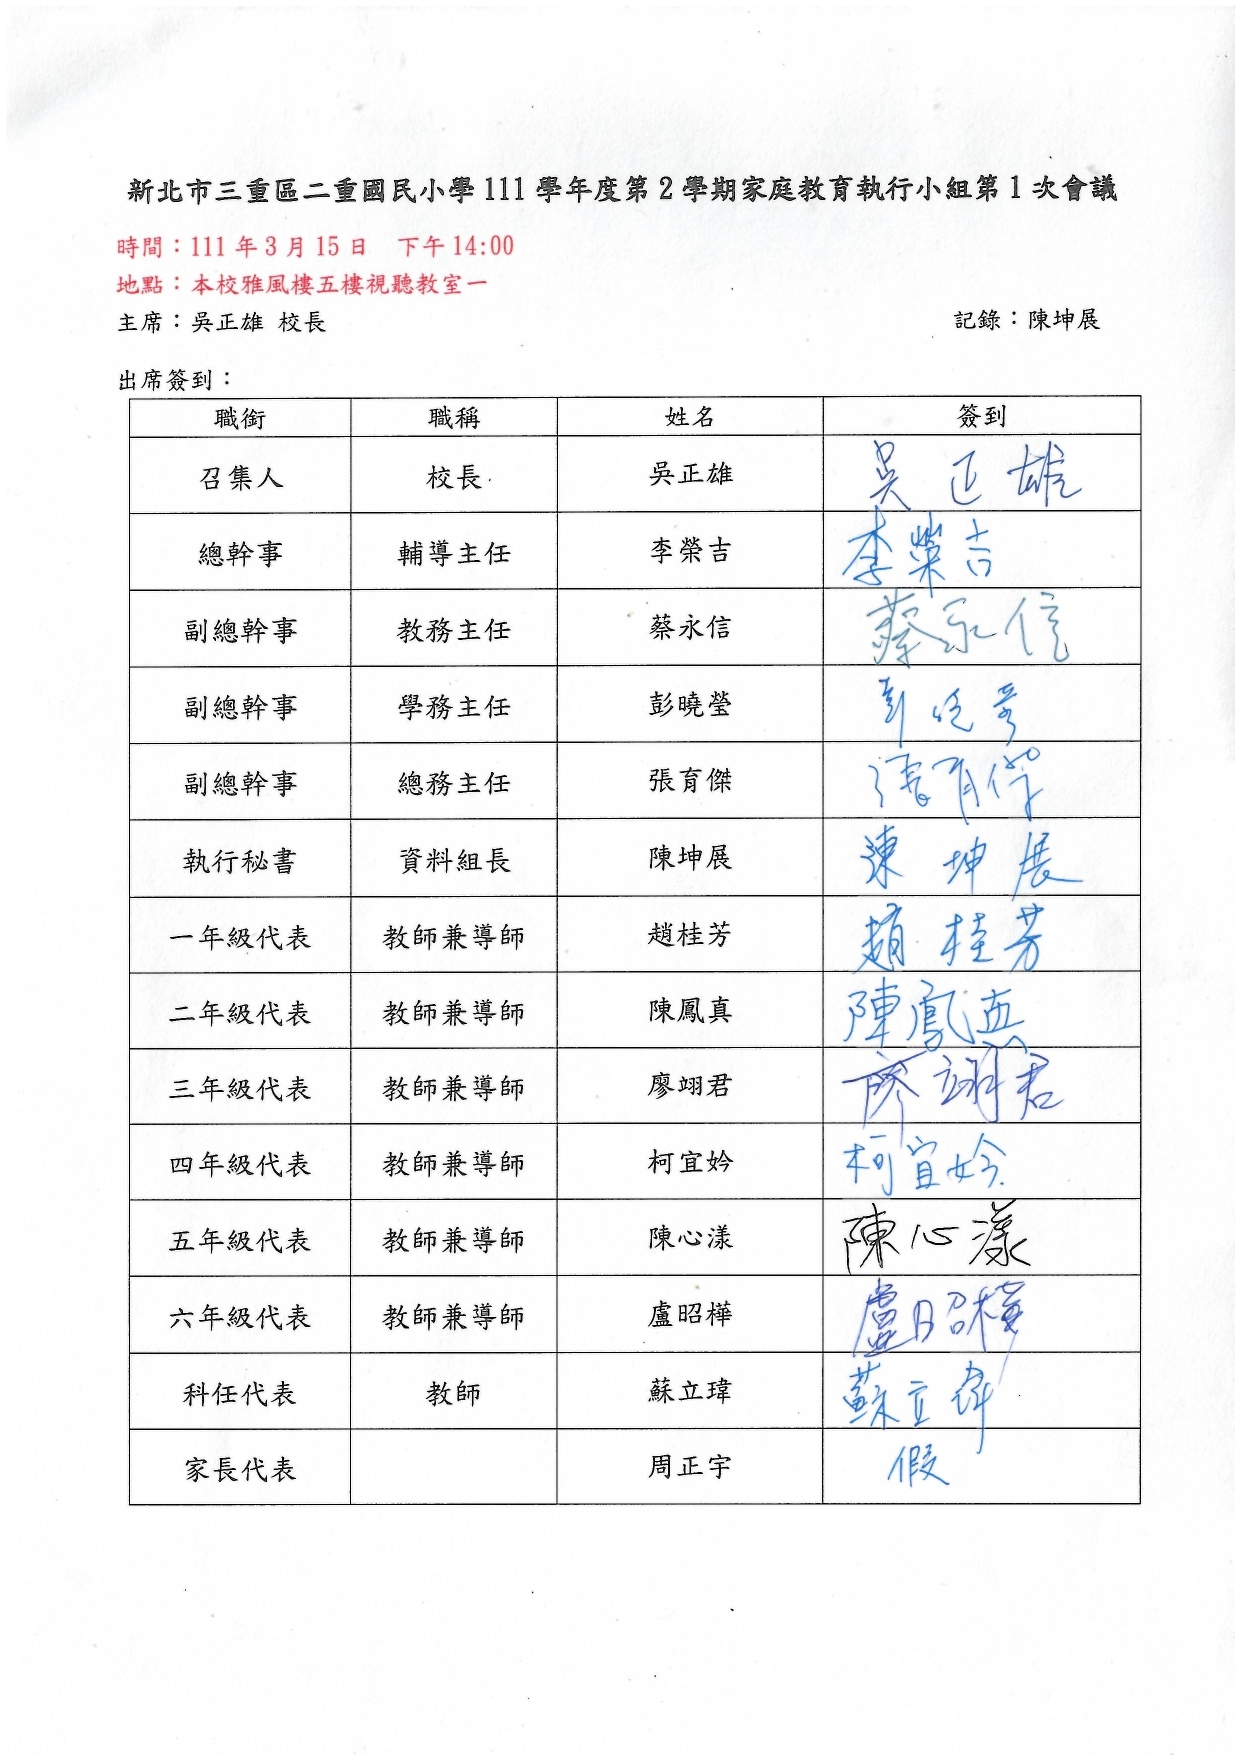 新北市三重區二重國民小學111學年度第2學期家庭教育執行小組第1次會議
時間：111年3月15日 下午14:00
地點：本校雅風樓五樓視聽教室一
主席：吳正雄 校長 記錄：陳坤展
出席簽到：
職銜 職稱 姓名 簽到
召集人 校長 吳正雄 吳正雄
總幹事 輔導主任 李榮吉 李榮吉
副總幹事 教務主任 蔡永信 蔡永信
副總幹事 學務主任 彭曉瑩 彭曉瑩
副總幹事 總務主任 張育傑 張育傑
執行秘書 資料組長 陳坤展 陳坤展
一年級代表 教師兼導師 趙桂芳 趙桂芳
二年級代表 教師兼導師 陳鳳真 陳鳳真
三年級代表 教師兼導師 廖翊君 廖翊君
四年級代表 教師兼導師 柯宜妗 柯宜妗
五年級代表 教師兼導師 陳心漾 陳心漾
六年級代表 教師兼導師 盧昭樺 盧昭樺
科任代表 教師 蘇立瑋 蘇立瑋
家長代表 周正宇 假